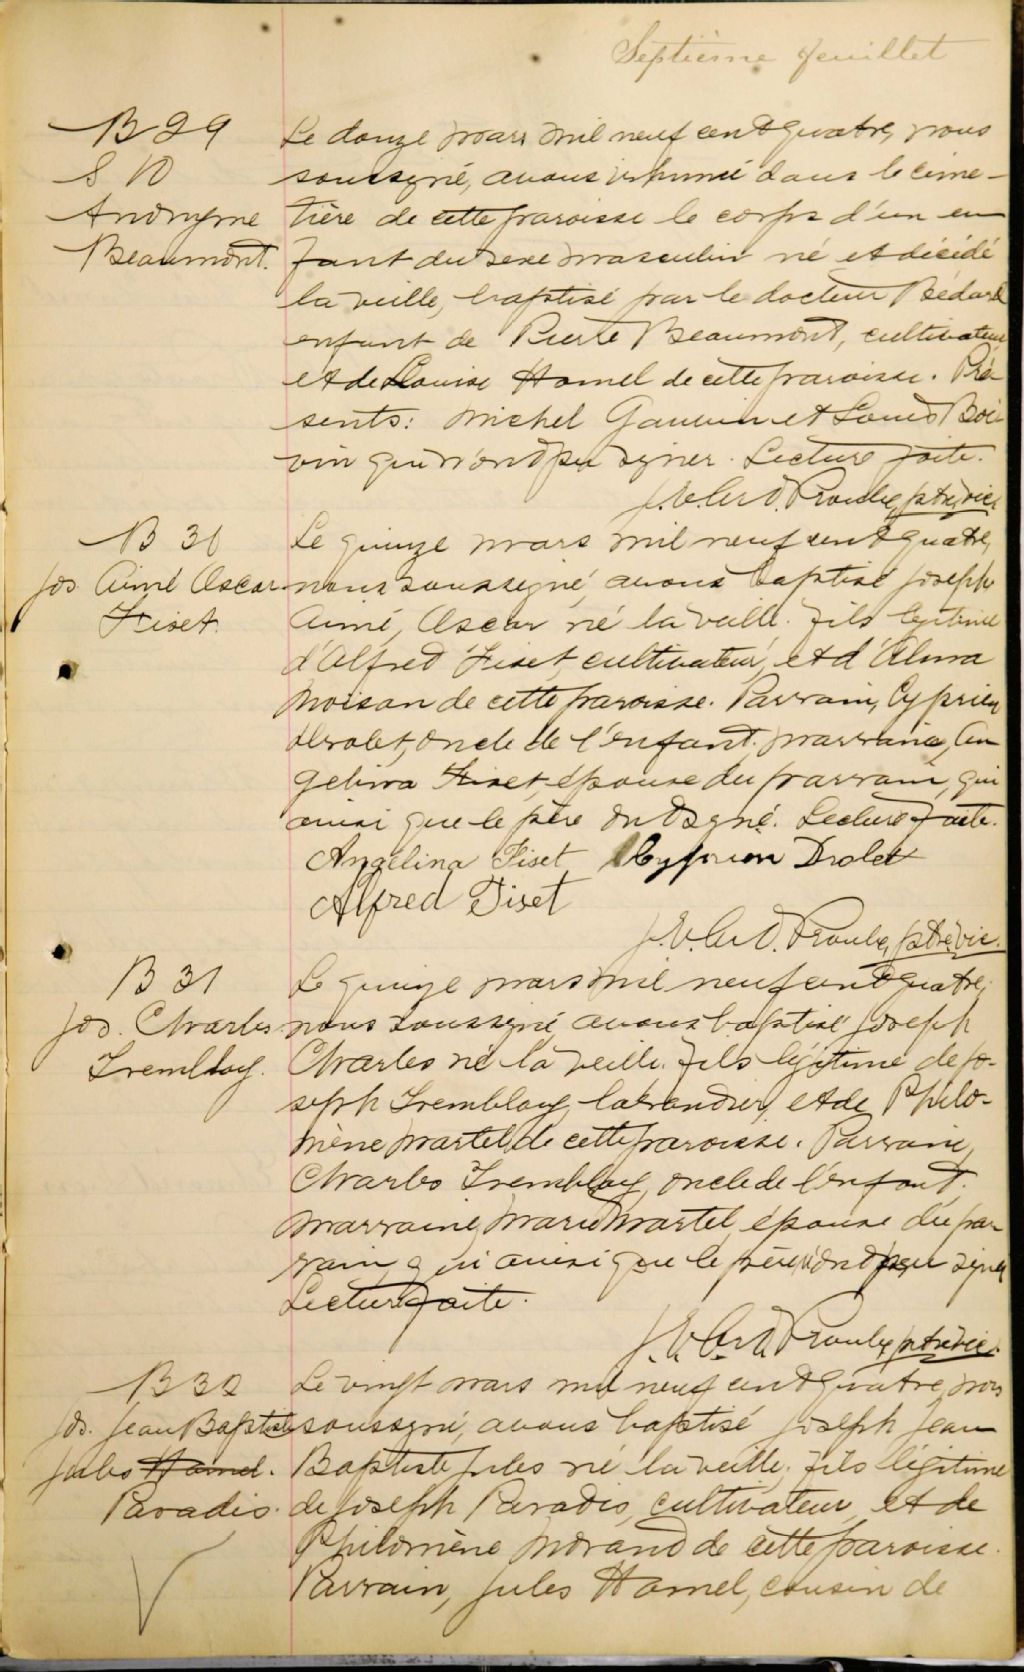 Septième feuillet
B 29
S 10
Anonyme
Beaumont.
Le douze mars mil neuf cent quatre, nous
soussigné, avons inhumé dans le cime-
tière de cette paroisse le corps d'un en
fant du sexe masculin né et décédé
la veille, baptisé par le docteur Bédard
enfant de Pierre Beaumont, cultivateur
et de Louise Hamel de cette paroisse. Pré-
sents: Michel Gauvin et Louis Boi
vin qui n'ont pu signer. Lecture faite.
ptre, vic.
B 30
Jos Aimé Oscar
Fiset.
Le quinze mars mil neuf cent quatre,
nous soussigné, avons baptisé Joseph
Aimé, Oscar né la veille. fils légitime
d'Alfred Fiset, cultivateur, et d'Alma
Moisan de cette paroisse. Parrain, Cyprien
Drolet, oncle de l'enfant, marraine, An
gelina Fiset, épouse du parrain, qui
ainsi que le père ont signé. Lecture faite.
Angélina Fiset Cyprien Drolet
Alfred Fiset
ptre, vic.
B 31
Jos. Charles
Tremblay.
Le quinze mars mil neuf cent quatre,
nous soussigné, avons baptisé Joseph
Charles né la veille. fils légitime de Jo-
seph Tremblay, et de Philo-
mène Martel de cette paroisse. Parrain,
Charles Tremblay, oncle de l'enfant,
marraine, Marie Martel, épouse du par-
rain, qui ainsi que le père n'ont pu signer
Lecture faite.
ptre, vic.
B 32
Jos. Jean Baptiste
Jules Hamel.
Paradis.
Le vingt mars mil neuf cent quatre, nous
soussigné, avons baptisé Joseph Jean
Baptiste Jules né la veille, fils légitime
de Joseph Paradis, cultivateur, et de
Philomène Morand de cette paroisse.
Parrain, Jules Hamel, cousin de